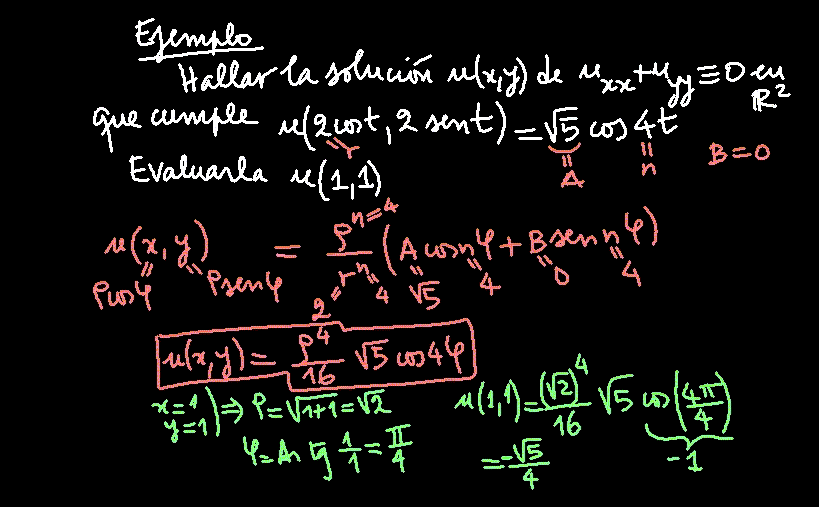 Ejemplo
Hallar la solución u(x,y) de u_xx+u_yy≡0 en ℝ²
que cumple u(2cost, 2 sent)=√5 cos 4t
=r =A =n B=0
Evaluarla u(1,1)
u(x, y) = ρ^n=4 / r^n (A cos nφ + B sen nφ)
ρcosφ ρsenφ 2 4 √5 4 0 4
u(x,y) = ρ⁴/16 √5 cos4φ
x=1 y=1) ⇒ ρ=√1+1=√2 u(1,1)=(√2)⁴/16 √5 cos(4π/4)
φ=Arc tg 1/1=π/4 =-√5/4 -1